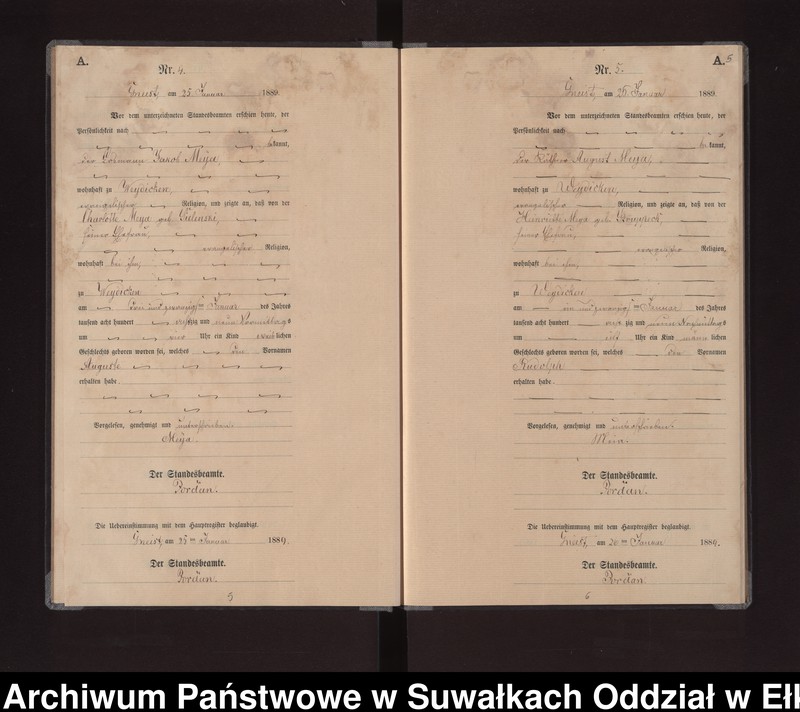 A.
Nr. 4.
am 25 Januar 1889.
Vor dem unterzeichneten Standesbeamten erschien heute, der
Persönlichkeit nach
bekannt,
der Jakob Meya,
wohnhaft zu Weydicken,
evangelischer Religion, und zeigte an, daß von der
Charlotte Meya geb.
seiner Ehefrau,
evangelischer Religion,
wohnhaft bei ihm,
zu Weydicken
am Januar des Jahres
tausend acht hundert zig und neun Vormittags
um vier Uhr ein Kind weiblichen
Geschlechts geboren worden sei, welches den Vornamen
Auguste
erhalten habe.
Vorgelesen, genehmigt und unterschrieben.
Meya.
Der Standesbeamte.
Pordan.
Die Uebereinstimmung mit dem Hauptregister beglaubigt.
am 25ten Januar 1889.
Der Standesbeamte.
Pordan.
5
A.
5
Nr. 5.
am 26 Januar 1889.
Vor dem unterzeichneten Standesbeamten erschien heute, der
Persönlichkeit nach
bekannt,
der August Meya,
wohnhaft zu Weydicken,
evangelischer Religion, und zeigte an, daß von der
Henriette Meya geb.
seiner Ehefrau,
evangelischer Religion,
wohnhaft bei ihm,
zu Weydicken
am ein und zwanzigsten Januar des Jahres
tausend acht hundert zig und neun Nachmittags
um Uhr ein Kind männlichen
Geschlechts geboren worden sei, welches den Vornamen
Rudolph
erhalten habe.
Vorgelesen, genehmigt und unterschrieben.
Der Standesbeamte.
Pordan.
Die Uebereinstimmung mit dem Hauptregister beglaubigt.
am 26ten Januar 1889.
Der Standesbeamte.
Pordan
6
Archiwum Państwowe w Suwałkach Oddział w Ełk